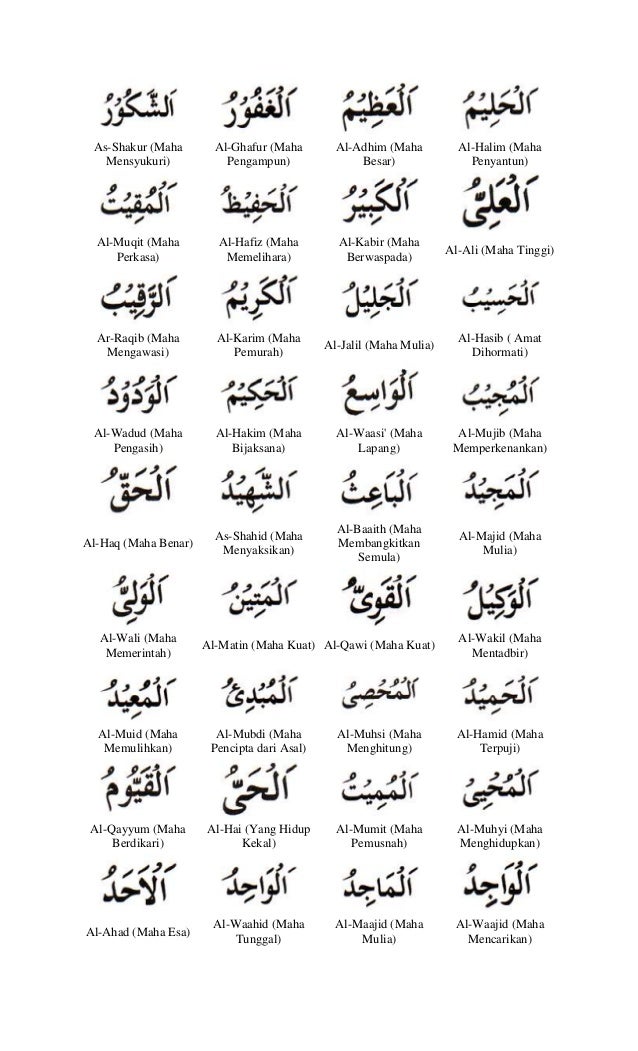 اَلْحَلِيْمُ
Al-Halim (Maha
Penyantun)
اَلْعَظِيْمُ
Al-Adhim (Maha
Besar)
اَلْغَفُوْرُ
Al-Ghafur (Maha
Pengampun)
اَلشَّكُوْرُ
As-Shakur (Maha
Mensyukuri)
اَلْعَلِىُّ
Al-Ali (Maha Tinggi)
اَلْكَبِيْرُ
Al-Kabir (Maha
Berwaspada)
اَلْحَفِيْظُ
Al-Hafiz (Maha
Memelihara)
اَلْمُقِيْتُ
Al-Muqit (Maha
Perkasa)
اَلْحَسِيْبُ
Al-Hasib ( Amat
Dihormati)
اَلْجَلِيْلُ
Al-Jalil (Maha Mulia)
اَلْكَرِيْمُ
Al-Karim (Maha
Pemurah)
اَلرَّقِيْبُ
Ar-Raqib (Maha
Mengawasi)
اَلْمُجِيْبُ
Al-Mujib (Maha
Memperkenankan)
اَلْوَاسِعُ
Al-Waasi' (Maha
Lapang)
اَلْحَكِيْمُ
Al-Hakim (Maha
Bijaksana)
اَلْوَدُوْدُ
Al-Wadud (Maha
Pengasih)
اَلْمَجِيْدُ
Al-Majid (Maha
Mulia)
اَلْبَاعِثُ
Al-Baaith (Maha
Membangkitkan
Semula)
اَلشَّهِيْدُ
As-Shahid (Maha
Menyaksikan)
اَلْحَقُّ
Al-Haq (Maha Benar)
اَلْوَكِيْلُ
Al-Wakil (Maha
Mentadbir)
اَلْقَوِىُّ
Al-Qawi (Maha Kuat)
اَلْمَتِيْنُ
Al-Matin (Maha Kuat)
اَلْوَلِىُّ
Al-Wali (Maha
Memerintah)
اَلْحَمِيْدُ
Al-Hamid (Maha
Terpuji)
اَلْمُحْصِىُ
Al-Muhsi (Maha
Menghitung)
اَلْمُبْدِئُ
Al-Mubdi (Maha
Pencipta dari Asal)
اَلْمُعِيْدُ
Al-Muid (Maha
Memulihkan)
اَلْمُحْيِىُ
Al-Muhyi (Maha
Menghidupkan)
اَلْمُمِيْتُ
Al-Mumit (Maha
Pemusnah)
اَلْحَىُّ
Al-Hai (Yang Hidup
Kekal)
اَلْقَيُّوْمُ
Al-Qayyum (Maha
Berdikari)
اَلْوَاجِدُ
Al-Waajid (Maha
Mencarikan)
اَلْمَاجِدُ
Al-Maajid (Maha
Mulia)
اَلْوَاحِدُ
Al-Waahid (Maha
Tunggal)
اَلْاَحَدُ
Al-Ahad (Maha Esa)